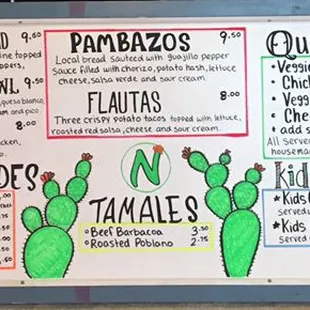 9.50
ine topped
PPERS,
WL 9.50
queso blanco,
and pico
8.00
hicken,
DES
PAMBAZOS 9.50
Local bread sauteed with guajillo pepper
Sauce filled with chorizo, potato hash, lettuce
cheese, salsa verde and sour cream.
FLAUTAS 8.00
Three crispy potato tacos topped with lettuce,
roasted red salsa, cheese and sour cream.
N
TAMALES
Beef Barbacoa 3.50
Roasted Poblano 2.75
Qu
Veggi
Chic
Vegg
Che
+ add s
All Served
housema
Kid
Kids
served
Kids
serv